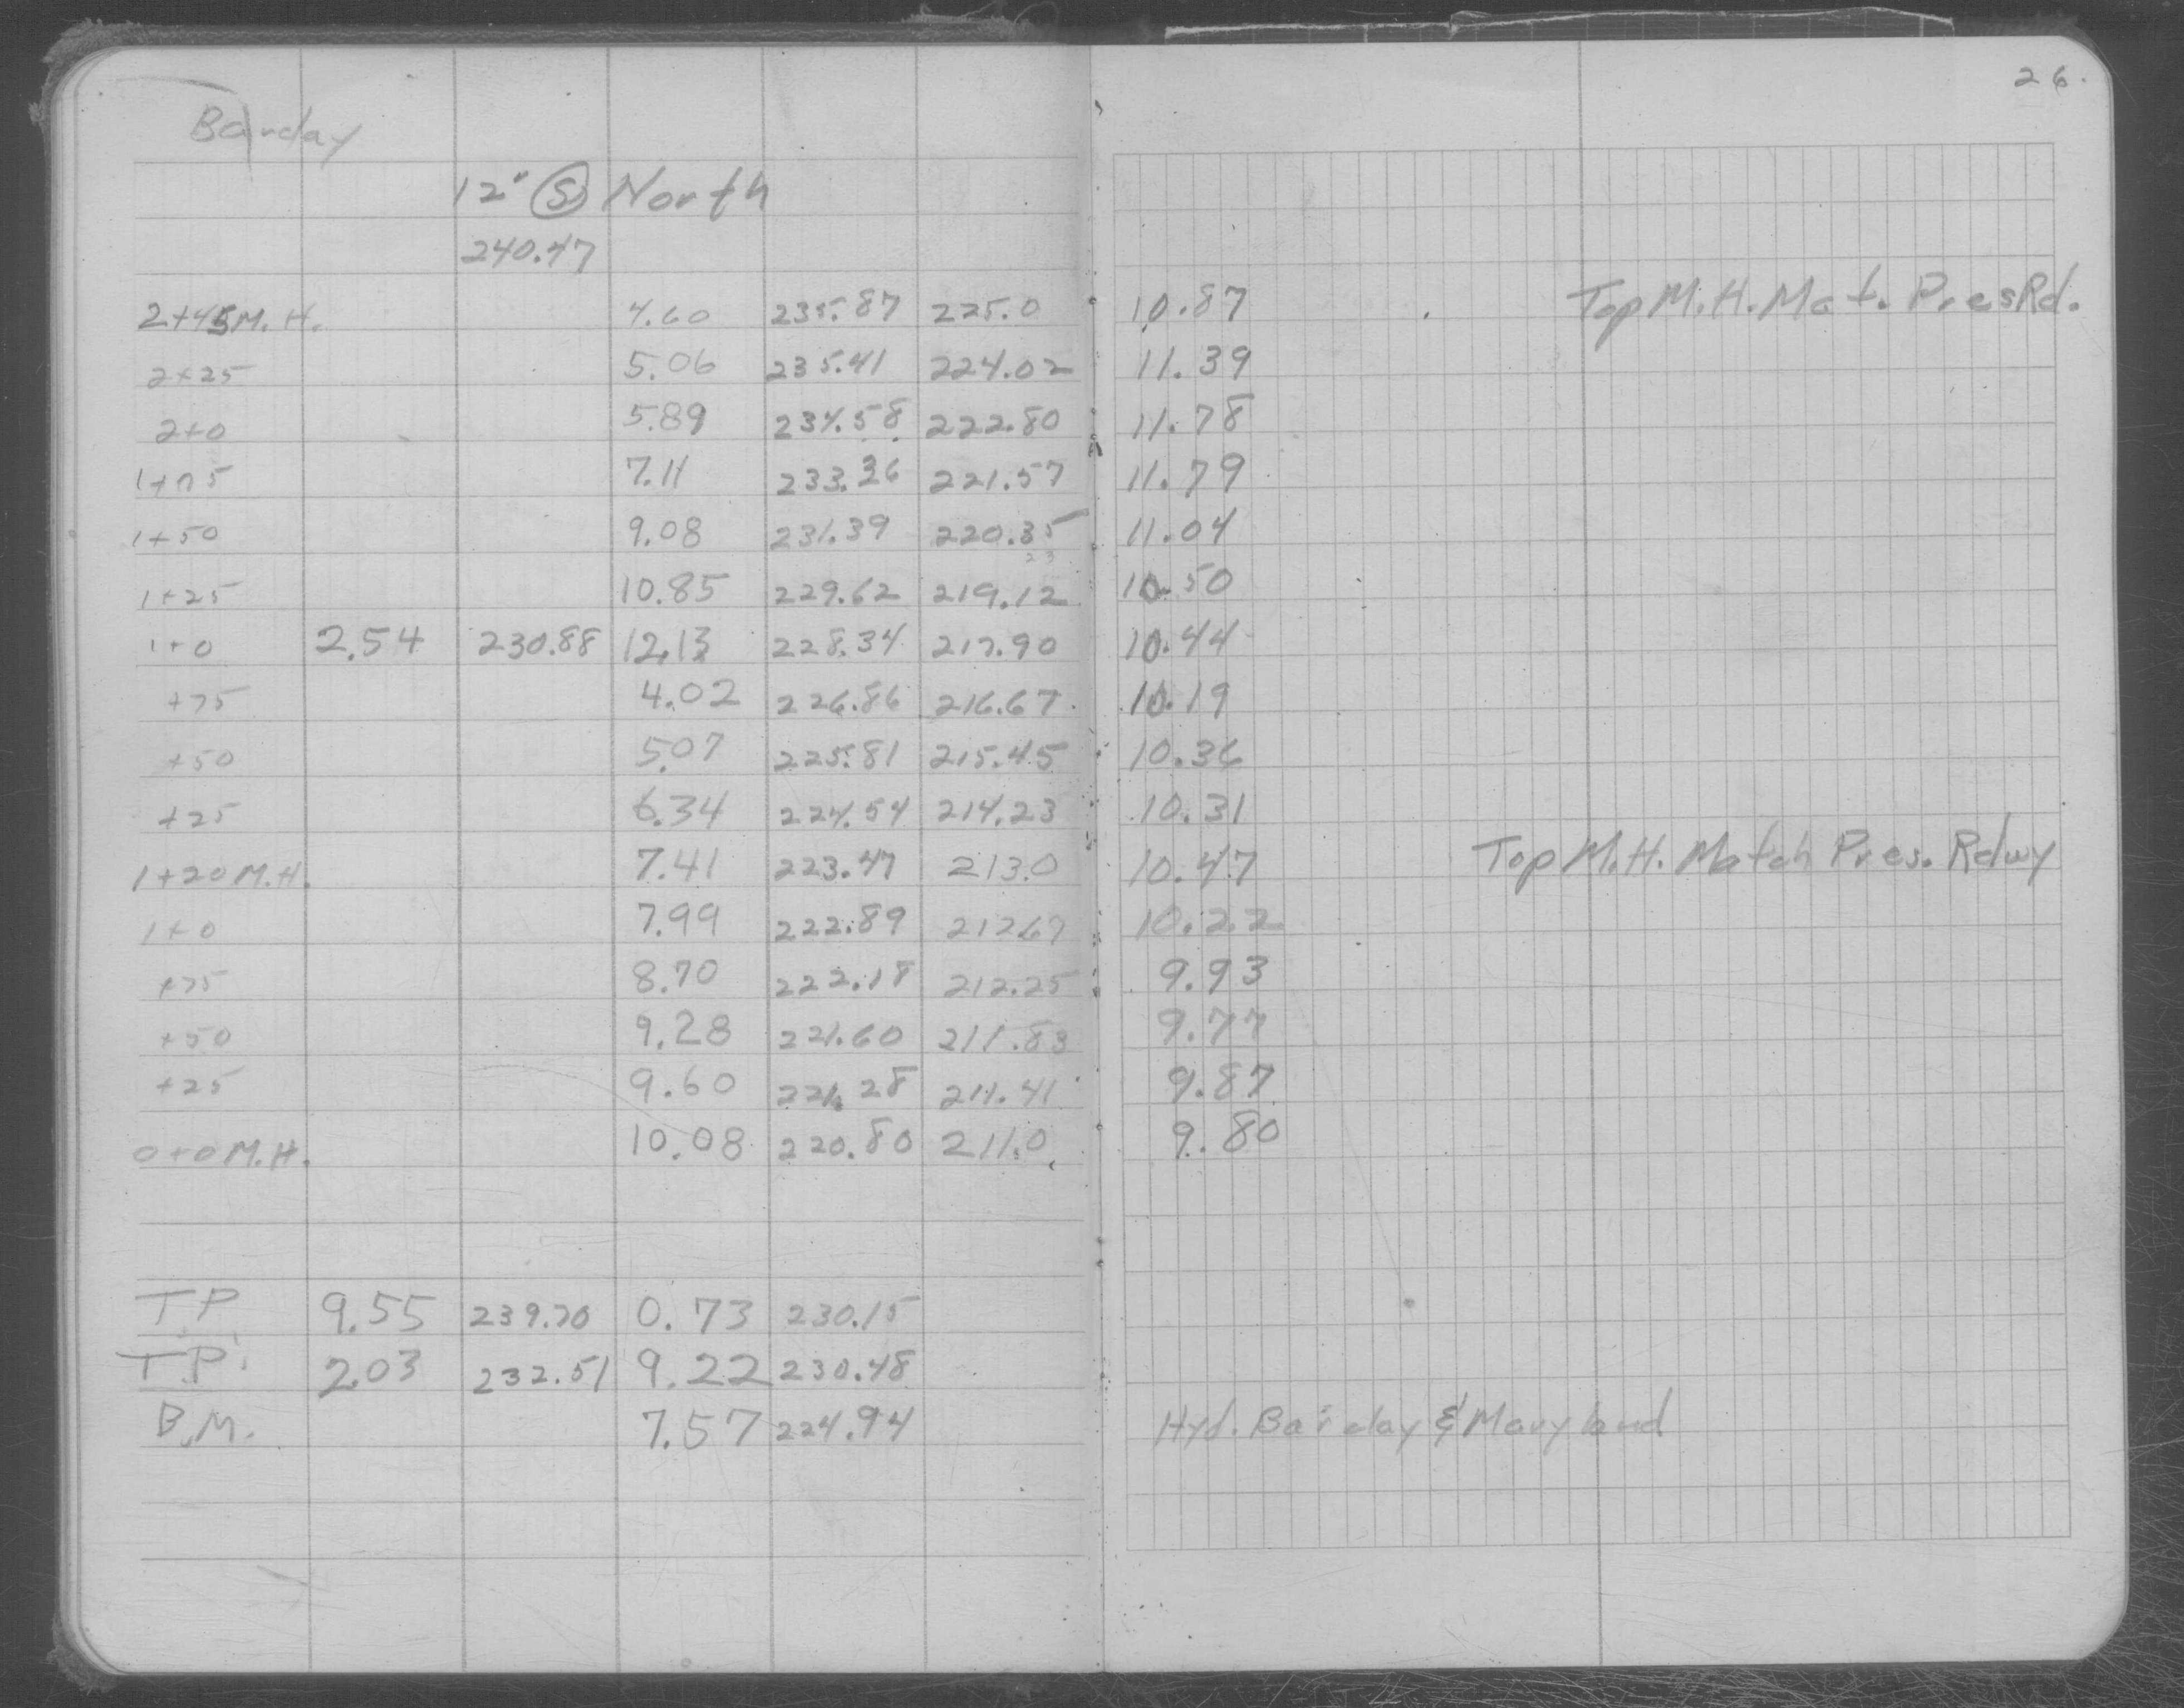 26.
Barclay
12" Ⓢ North
240.47
2+45 M.H. 4.60 235.87 225.0 10.87 Top M.H. Mat. Pres Rd.
2+25 5.06 235.41 224.02 11.39
2+0 5.89 234.58 222.80 11.78
1+75 7.11 233.36 221.57 11.79
1+50 9.08 231.39 220.35 11.04
1+25 10.85 229.62 219.12 10.50
1+0 2.54 230.88 12.13 228.34 217.90 10.44
+75 4.02 226.86 216.67 10.19
+50 5.07 225.81 215.45 10.36
+25 6.34 224.54 214.23 10.31
1+20 M.H. 7.41 223.47 213.0 10.47 Top M.H. Match Pres. Rdwy
1+0 7.99 222.89 212.67 10.22
+75 8.70 222.18 212.25 9.93
+50 9.28 221.60 211.83 9.77
+25 9.60 221.28 211.41 9.87
0+0 M.H. 10.08 220.80 211.0 9.80
T.P 9.55 239.70 0.73 230.15
T.P. 2.03 232.51 9.22 230.48
B.M. 7.57 224.94 Hyd. Barclay & Maryland